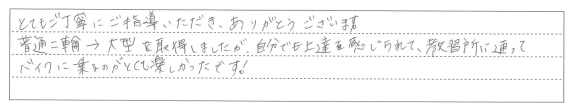 とてもご丁寧にご指導いただき、ありがとうございます
普通二輪→大型を取得しましたが、自分でも上達を感じられて、教習所に通って
バイクに乗るのがとても楽しかったです!